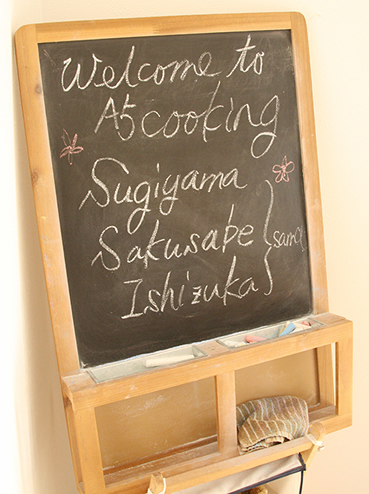 Welcome to
A5 cooking
Sugiyama
Sakurabe
Ishizuka
sama